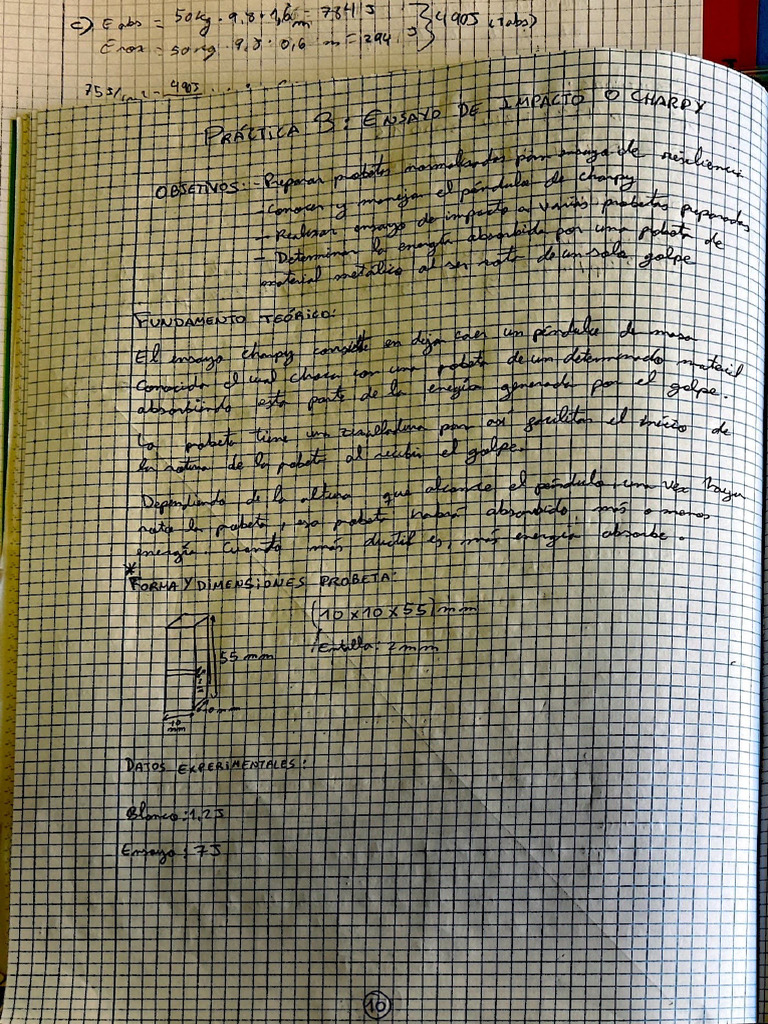 c) E abs = 50kg · 9,8 · 1,6 m = 784 J } 490J (Eabs)
= 50 kg · 9,8 · 0,6 m = 294 J
75 J/cm² = 490J
PRÁCTICA 3: ENSAYO DE IMPACTO O CHARPY
OBJETIVOS: - Preparar probetas normalizadas para ensayo de resiliencia
- Conocer y manejar el péndulo de charpy
- Realizar ensayo de impacto a varias probetas preparadas
- Determinar la energía absorbida por una probeta de
material metálico al ser rota de un solo golpe
FUNDAMENTO TEÓRICO:
El ensayo charpy consiste en dejar caer un péndulo de masa
conocida el cual choca con una probeta de un determinado material
absorbiendo esta parte de la energía generada por el golpe.
La probeta tiene una para así facilitar el inicio de
la rotura de la probeta al recibir el golpe.
Dependiendo de la altura que alcance el péndulo una vez haya
roto la probeta, esa probeta habrá absorbido más o menos
energía. Cuanto más ductil es, más energía absorbe.
*
FORMA Y DIMENSIONES PROBETA:
(10 x 10 x 55) mm
Entalla: 2 mm
55 mm
10 mm
10 mm
DATOS EXPERIMENTALES:
Blanco: 1,2J
Ensayo: 7J
10